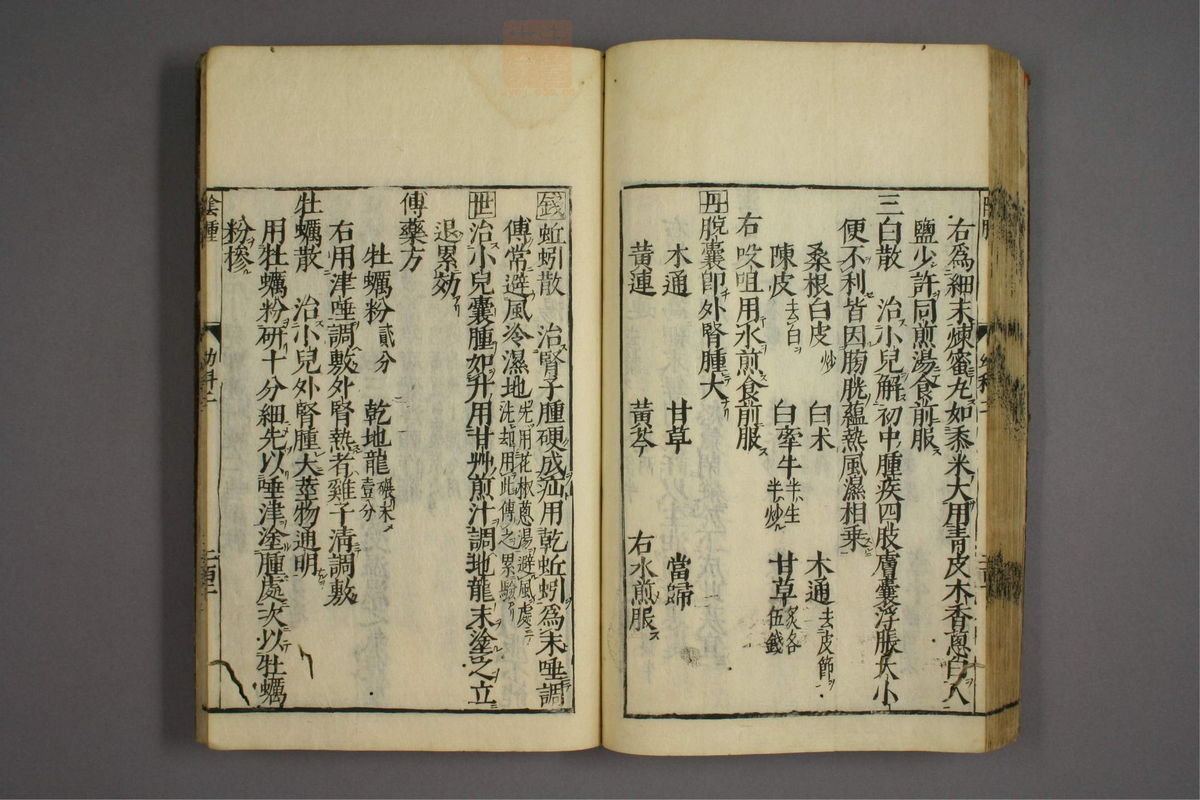 右爲細末煉蜜丸如黍米大用青皮木香蔥白入
鹽少許同煎湯食前服
三白散 治小兒解初中腫疾四肢膚囊浮脹大小
便不利皆因膀胱蘊熱風濕相乗
桑根白皮炒 白朮 木通去皮節
陳皮去白 白牽牛半生半炒 甘草炙各伍錢
右㕮咀用水煎食前服
丹 脫囊即外腎腫大
木通 甘草 當歸
黃連 黃芩 右水煎服
錢 蚯蚓散 治腎子腫硬成疝用乾蚯蚓爲末唾調
傅常避風冷濕地先用花椒蔥湯避風處洗却用此傅之累驗
世 治小兒囊腫如升用甘艸煎汁調地龍末塗之立
退累効
傅藥方
牡蠣粉貳分 乾地龍碾末壹分
右用津唾調敷外腎熱者雞子清調敷
牡蠣散 治小兒外腎腫大莖物通明
用牡蠣粉研十分細先以唾津塗腫處次以牡蠣
粉糝
陰腫 幼科二